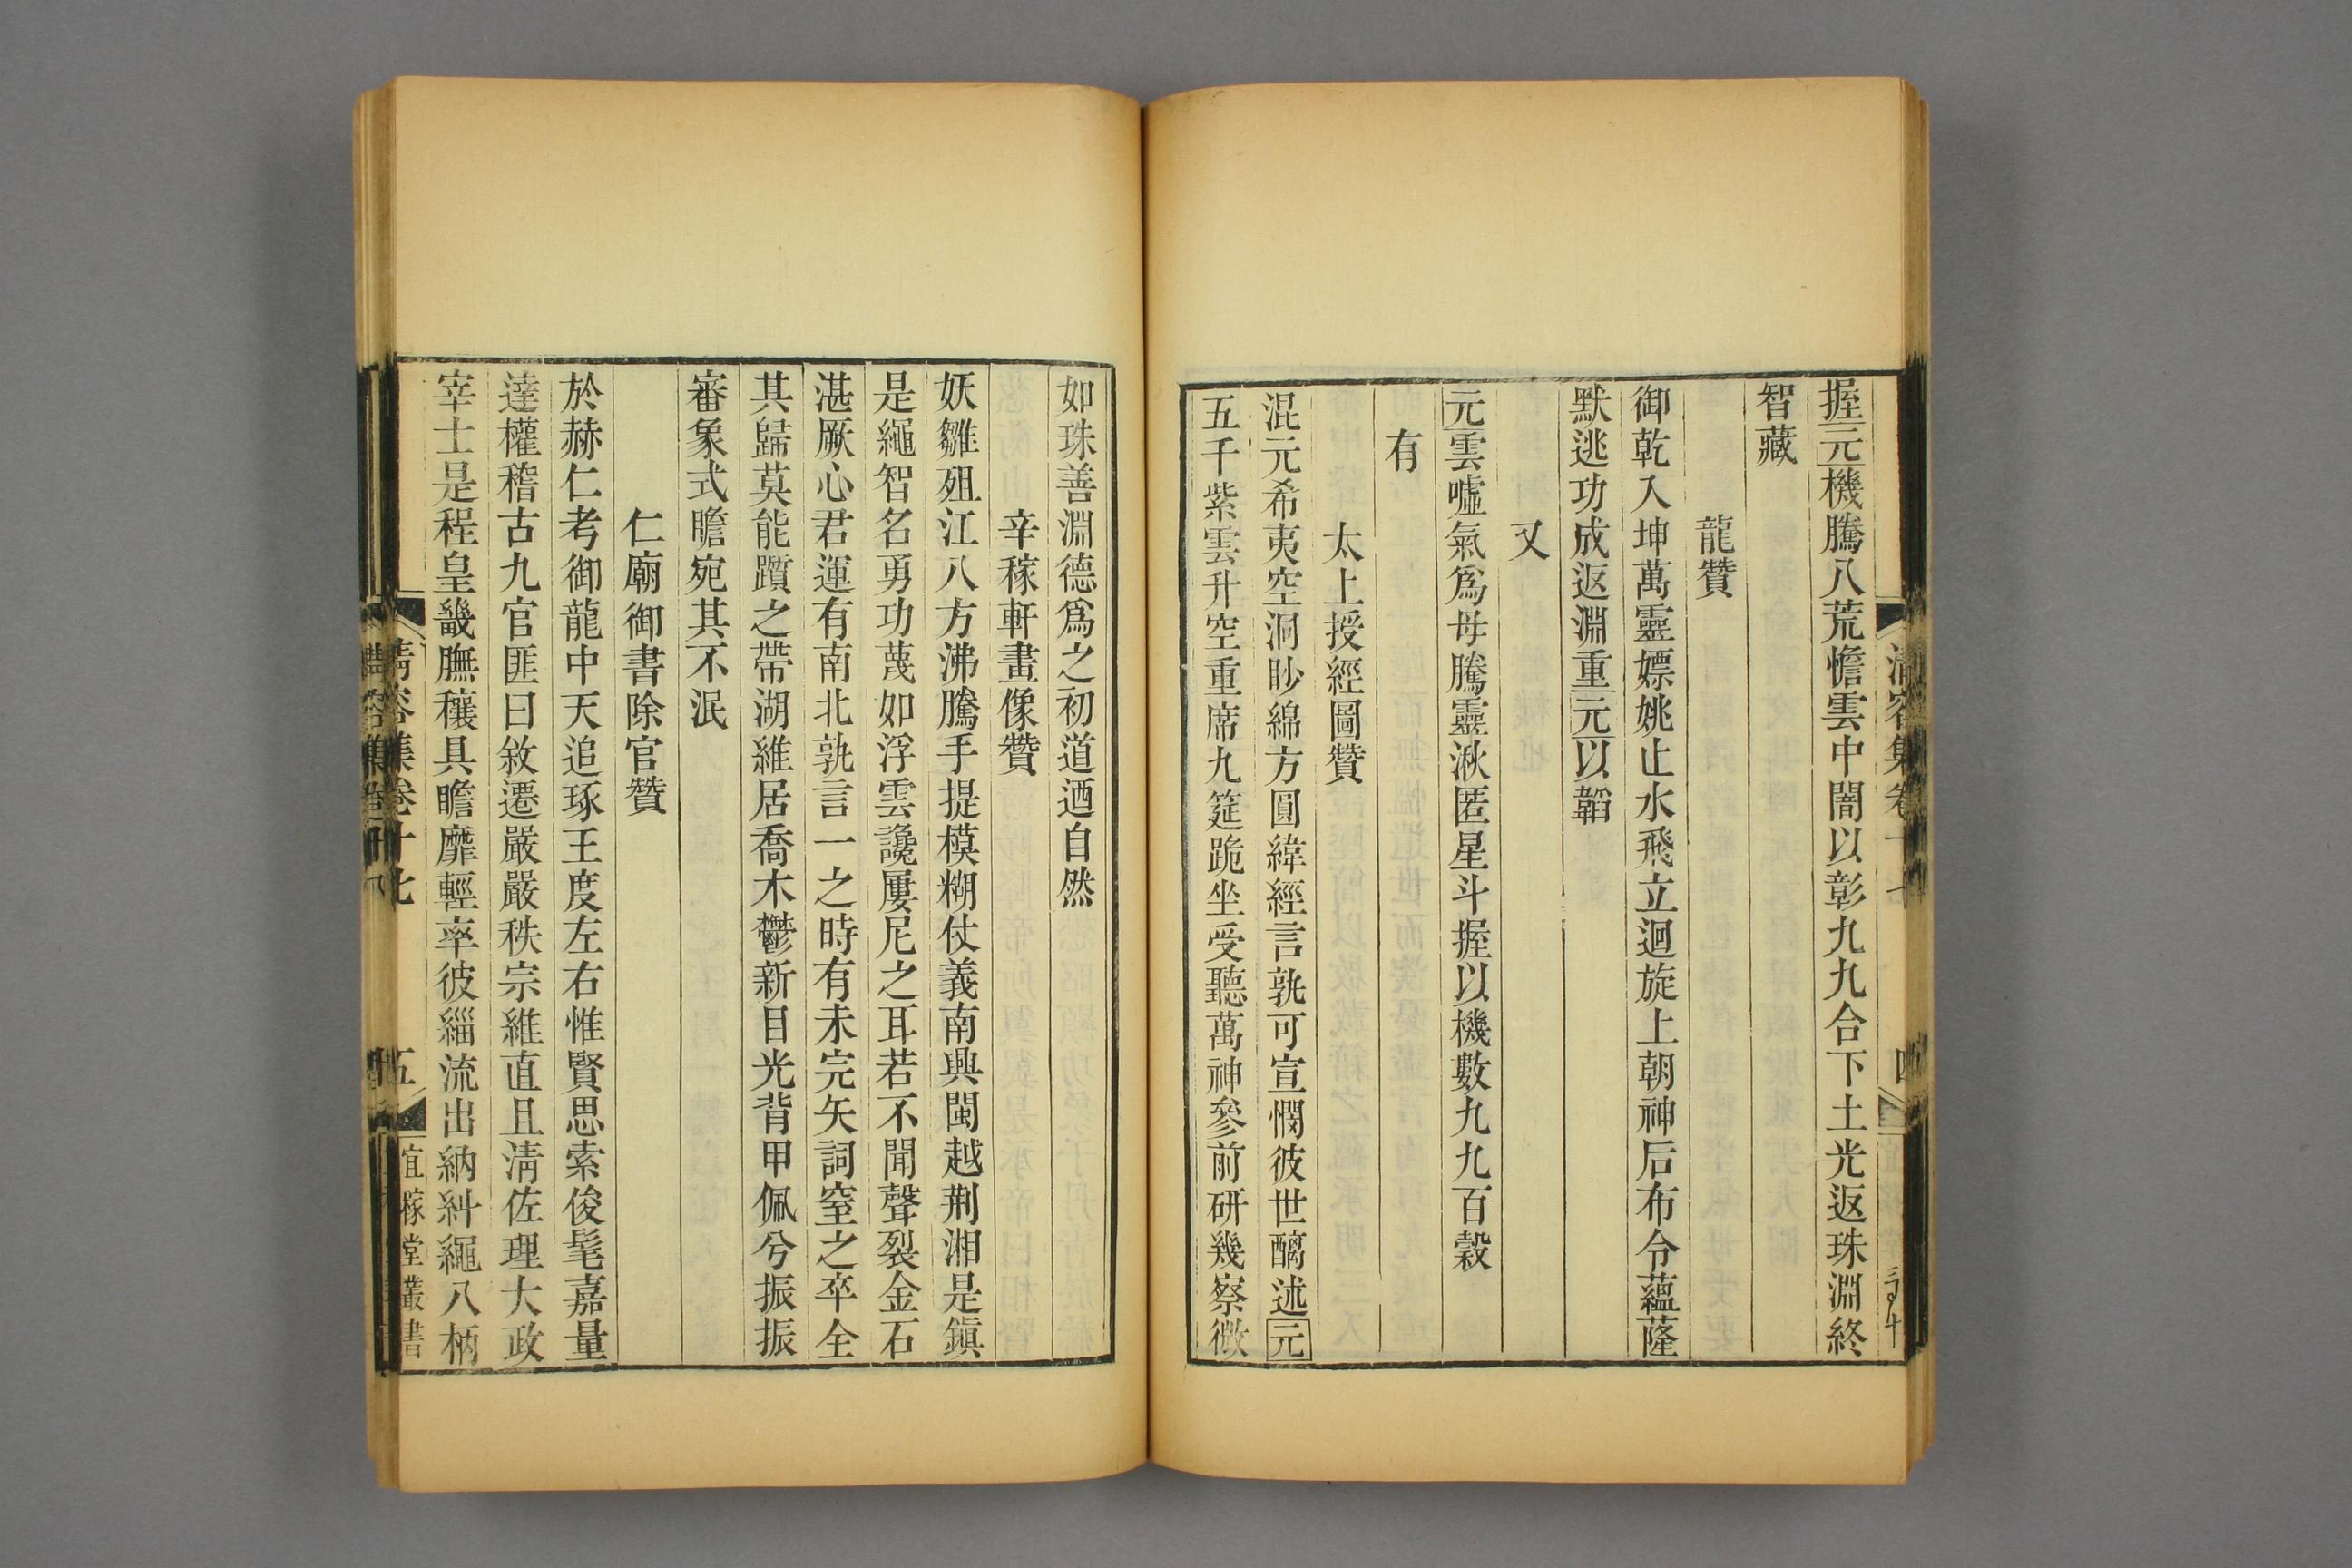 握元機騰八荒憺雲中闇以彰九九合下土光返珠淵終
智藏
龍贊
御乾入坤萬靈嫖姚止水飛立迴旋上朝神后布令蘊薩
默逃功成返淵重元以韜
又
元雲噓氣爲母騰靈湫匿星斗握以機數九九百穀
有
太上授經圖贊
混元希夷空洞眇綿方圓緯經言孰可宣憫彼世醨述元
五千紫雲升空重席九筵跪坐受聽萬神參前研幾察微
如珠善淵德爲之初道迺自然
辛稼軒畫像贊
妖雛殂江八方沸騰手提模糊仗義南興閩越荆湘是鎭
是繩智名勇功蔑如浮雲讒屢尼之耳若不聞聲裂金石
湛厥心君運有南北孰言一之時有未完矢詞窒之卒全
其歸莫能躓之帶湖維居喬木鬱新目光背甲佩兮振振
審象式瞻宛其不泯
仁廟御書除官贊
於赫仁考御龍中天追琢王度左右惟賢思索俊髦嘉量
達權稽古九官匪曰敘遷嚴嚴秩宗維直且淸佐理大政
宰士是程皇畿膴穰具瞻靡輕率彼緇流出納糾繩八柄
淸容集卷十七
五
宜稼堂叢書